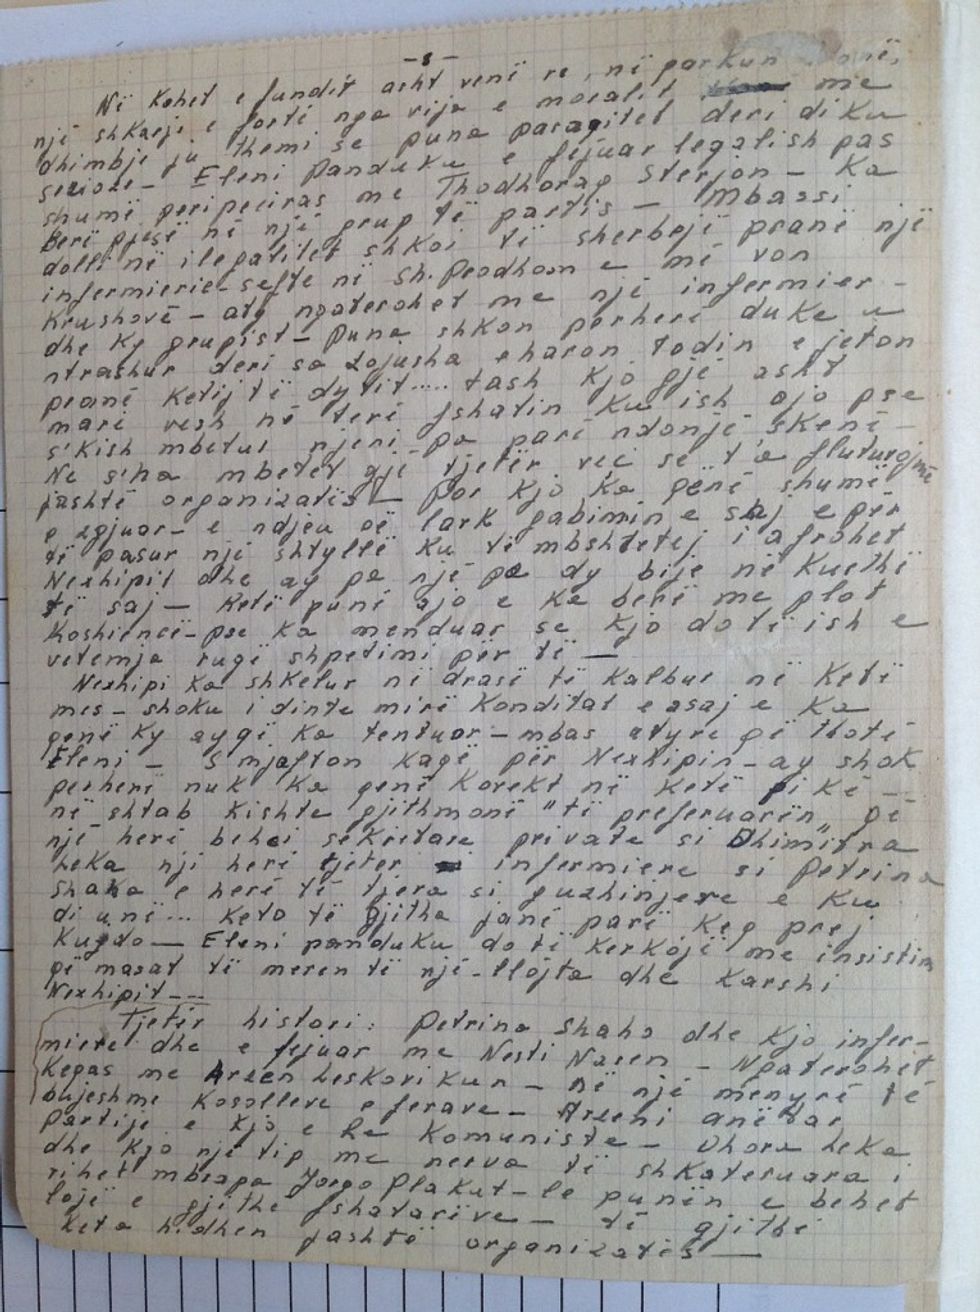 -8-
Në kohet e fundit asht venë re, në parkun
një shkarji e fortë nga vija e moralit me
dhimbje ju themi se puna paraqitet deri diku
serioze - Eleni Panduku e fejuar legalish pas
shumë peripeciras me Thodhoraq Sterjon - Ka
berë pjesë në një grup të partis - Mbassi
dolli në ilegalitet shkoi të sherbejë pranë një
infermierie - sefte në Sh. Peodhorn e më von
Krushovë - aty ngaterohet me një infermier -
dhe ky grupist - Puna shkon përherë duke u
ntrashur deri sa Lojusha eharon todin e jeton
pranë ketij të dytit .... tash kjo gjë asht
marë vesh në terë fshatin ku ish ajo pse
s'kish mbetur njeri pa parë ndonjë skenë -
Ne s'na mbetet gjë tjetër veç se t'a fluturojmë
jashtë organizatës - Por kjo ka qenë shumë
e zgjuar - e ndjeu që lark gabimin e saj e për
të pasur një shtyllë ku të mbshtetej i afrohet
Nexhipit dhe ay pa një pa dy bije në kurthë
të saj - Ketë punë ajo e ka berë me plot
koshiencë - pse ka menduar se kjo do të ish e
vetemja rugë shpetimi për të —
Nexhipi ka shkelur në drasë të kalbur në ketë
mes - shoku i dinte mirë konditat e asaj e ka
qenë ky ay që ka tentuar - mbas atyre që thotë
Eleni - S mjafton kaqë për Nexhipin - ay shok
perherë nuk ka qenë korekt në ketë pikë -
në shtab kishte gjithmonë "të preferuarën" që
një herë behei sekretare private si Dhimitra
Leka një herë tjeter infermiere si Petrina
Shaho e herë të tjera si guzhinjere e ku
di unë ... Keto të gjitha janë parë keq prej
kujdo - Eleni Panduku do të kerkojë me insistim
që masat të meren të një-llojta dhe karshi
Nexhipit ---
Tjetër histori: Petrina Shaho dhe kjo infer-
miere dhe e fejuar me Nesti Nasen - Ngaterohet
keqas me Arsen Leskovikun - në një menyrë të
bujeshme kosolleve e ferave - Arseni anëtar
partije e kjo e Re Komuniste - Uhora Leka
dhe kjo një tip me nerva të shkateruara i
rihet mbrapa Jorgo Plakut - le punën e behet
lojë e gjithe fshatarëve - të gjithë
keta hidhen jashtë organizatës —